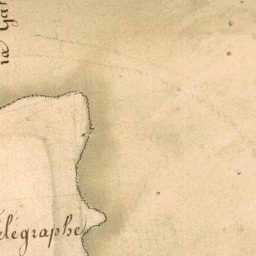 ia Ga
élégraphe